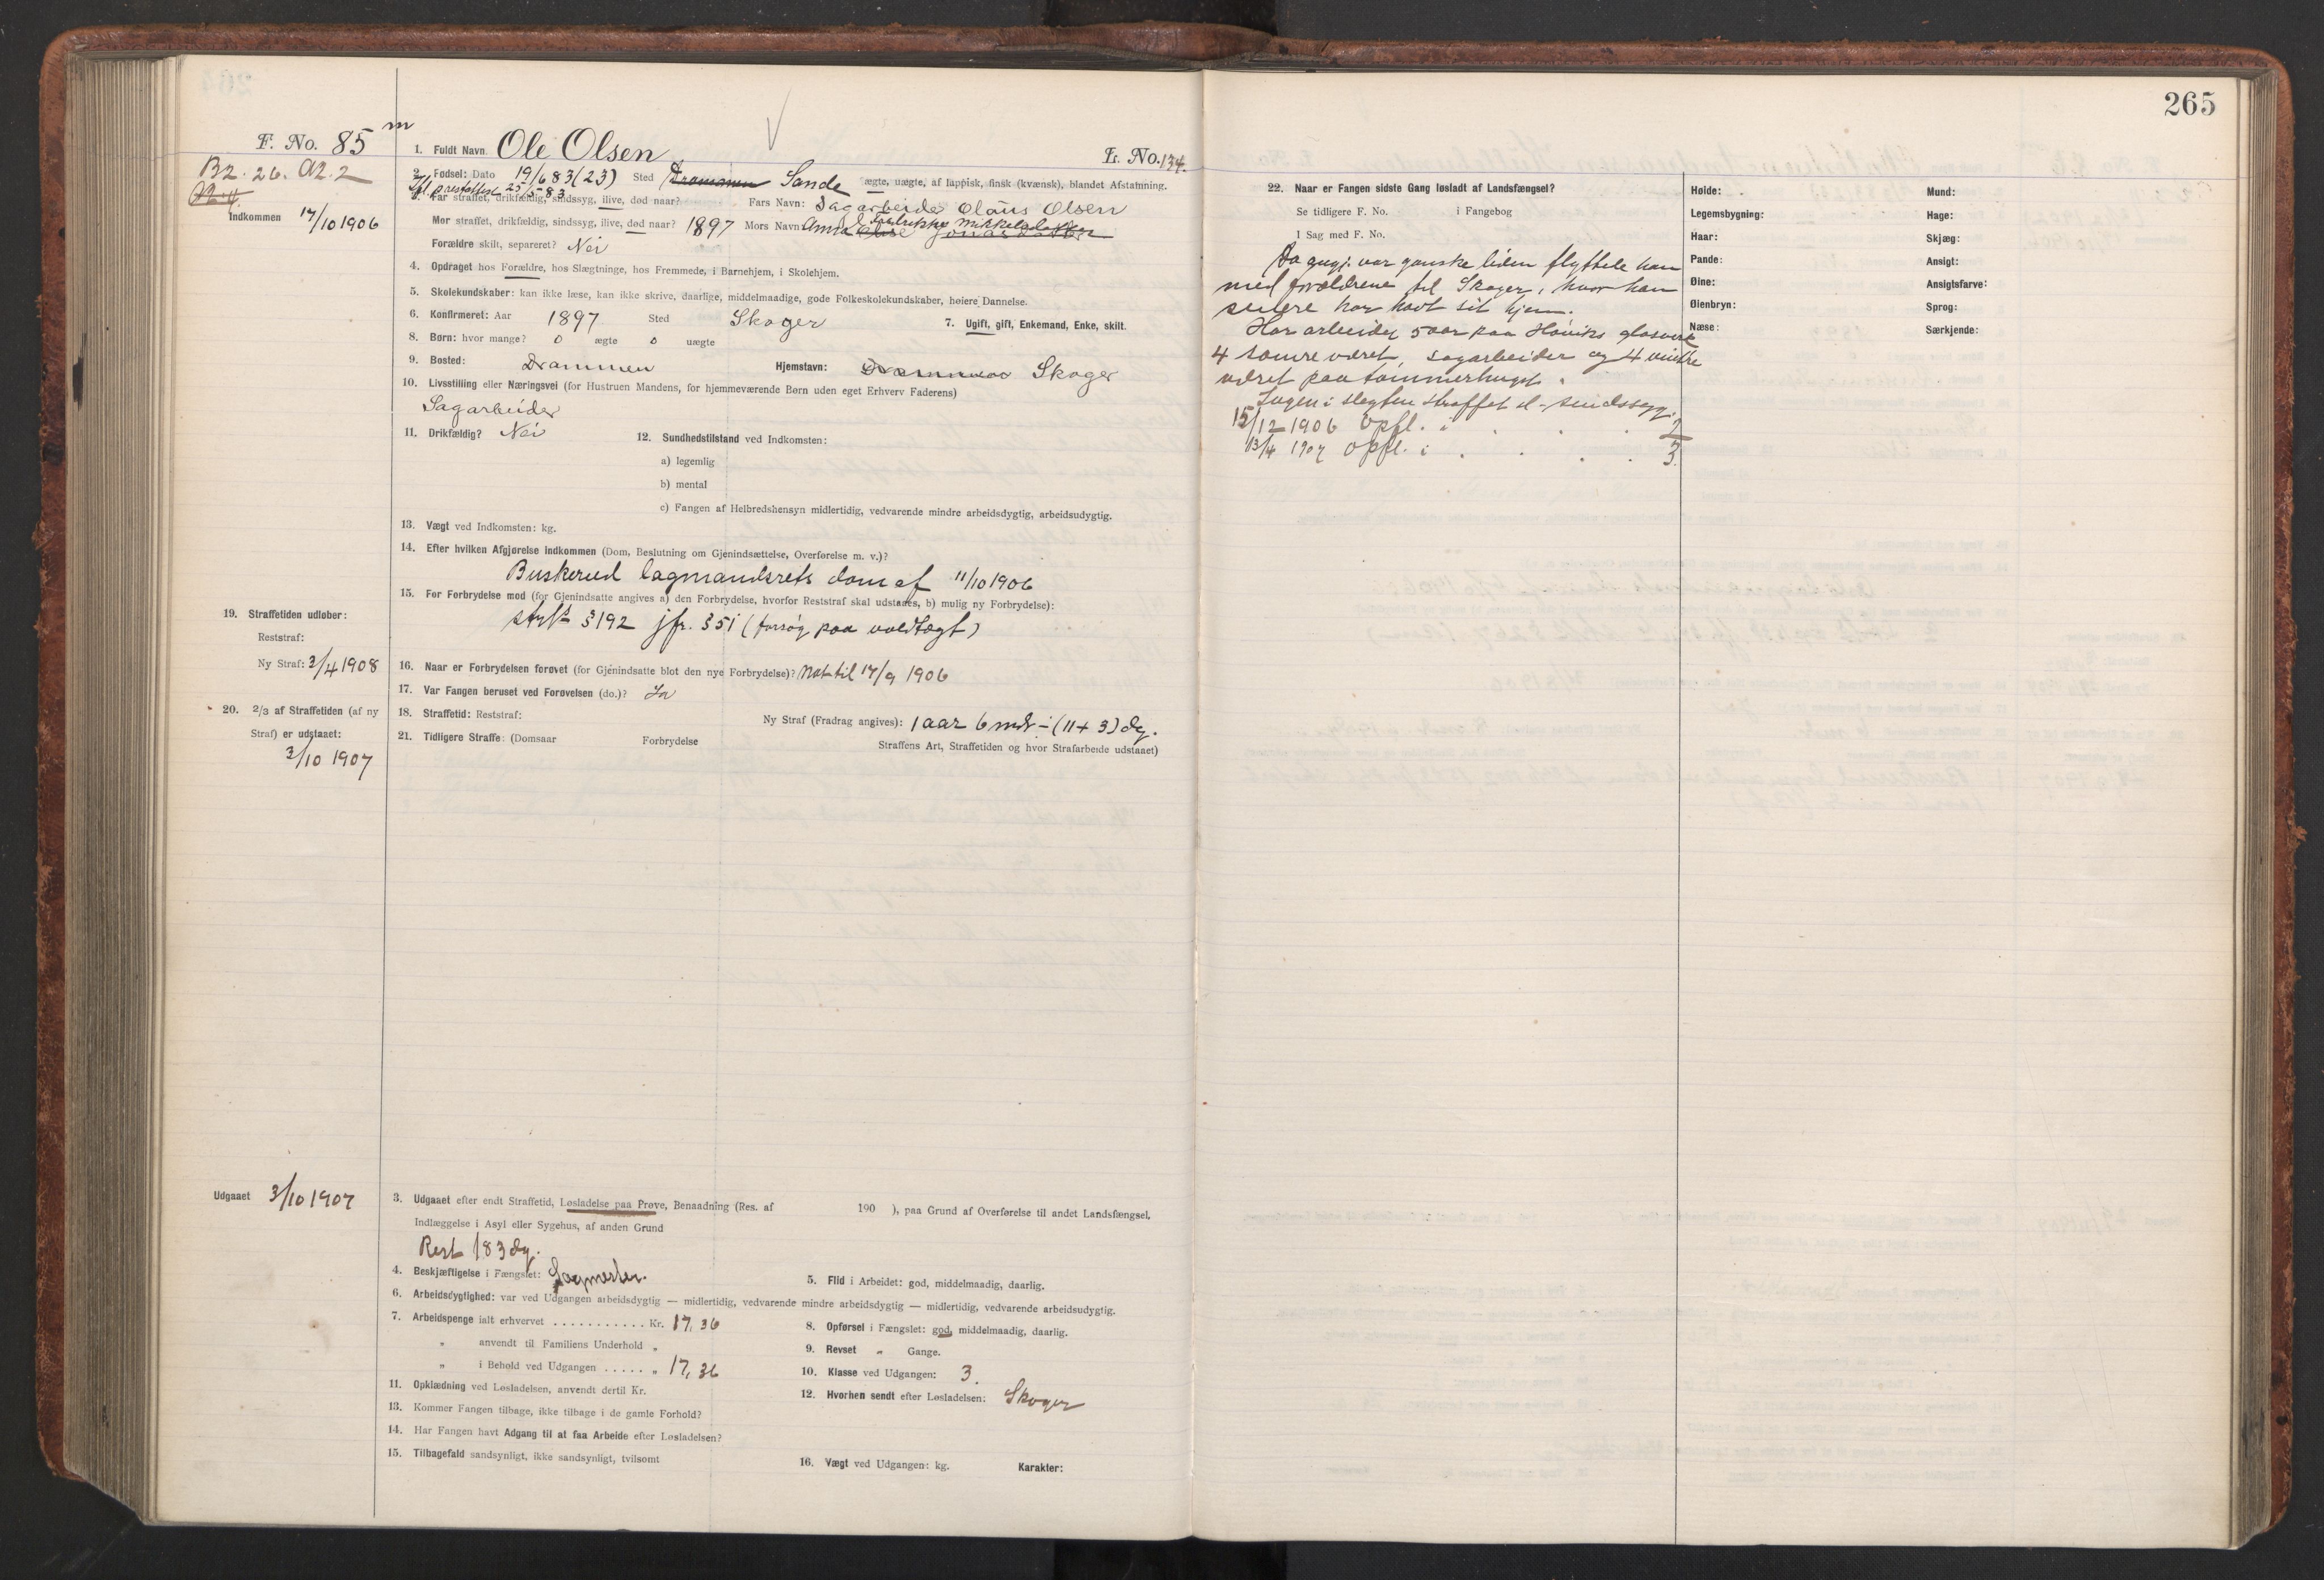 265
F. No. 85 m
B2. 26. A2. 2
Indkommen 17/10 1906
1. Fuldt Navn Ole Olsen L. No. 134.
2. Fødsel: Dato 19/6 83 (23) Sted Drammen Sande ægte, uægte, af lappisk, finsk (kvænsk), blandet Afstamning.
Ifl. præstattest 25/5 83
3. Far straffet, drikfældig, sindssyg, ilive, død naar? Fars Navn: Sagarbeider Olaus Olsen
Mor straffet, drikfældig, sindssyg, ilive, død naar? 1897 Mors Navn: Anna Fredrikke Mikkelsdatter
Forældre skilt, separeret? Nei
4. Opdraget hos Forældre, hos Slægtninge, hos Fremmede, i Barnehjem, i Skolehjem.
5. Skolekundskaber: kan ikke læse, kan ikke skrive, daarlige, middelmaadige, gode Folkeskolekundskaber, høiere Dannelse.
6. Konfirmeret: Aar 1897 Sted Skoger 7. Ugift, gift, Enkemand, Enke, skilt.
8. Børn: hvor mange? 0 ægte 0 uægte
9. Bosted: Drammen Hjemstavn: Drammen Skoger
10. Livsstilling eller Næringsvei (for Hustruen Mandens, for hjemmeværende Børn uden eget Erhverv Faderens)
Sagarbeider
11. Drikfældig? Nei 12. Sundhedstilstand ved Indkomsten:
a) legemlig
b) mental
c) Fangen af Helbredshensyn midlertidig, vedvarende mindre arbeidsdygtig, arbeidsudygtig.
13. Vægt ved Indkomsten: kg.
14. Efter hvilken Afgjørelse indkommen (Dom, Beslutning om Gjenindsættelse, Overførelse m. v.)?
Buskerud lagmandsrets dom af 11/10 1906
15. For Forbrydelse mod (for Gjenindsatte angives a) den Forbrydelse, hvorfor Reststraf skal udstaaes, b) mulig ny Forbrydelse):
strfl § 192 jfr. § 51 (forsøg paa voldtægt)
19. Straffetiden udløber:
Reststraf:
Ny Straf: 3/4 1908
16. Naar er Forbrydelsen forøvet (for Gjenindsatte blot den nye Forbrydelse)? Nat til 17/9 1906
17. Var Fangen beruset ved Forøvelsen (do.)? Ja
20. 2/3 af Straffetiden (af ny Straf) er udstaaet:
3/10 1907
18. Straffetid: Reststraf: Ny Straf (Fradrag angives): 1 aar 6 mdr ÷ (11 + 3) dg.
21. Tidligere Straffe: (Domsaar Forbrydelse Straffens Art, Straffetiden og hvor Strafarbeide udstaaet)
Udgaaet 3/10 1907
3. Udgaaet efter endt Straffetid, Løsladelse paa Prøve, Benaadning (Res. af 190 ), paa Grund af Overførelse til andet Landsfængsel,
Indlæggelse i Asyl eller Sygehus, af anden Grund
Rest 183 dg.
4. Beskjæftigelse i Fængslet: 5. Flid i Arbeidet: god, middelmaadig, daarlig.
6. Arbeidsdygtighed: var ved Udgangen arbeidsdygtig — midlertidig, vedvarende mindre arbeidsdygtig — midlertidig, vedvarende arbeidsudygtig.
7. Arbeidspenge ialt erhvervet . . . . . . . . . . . Kr. 17,36 8. Opførsel i Fængslet: god, middelmaadig, daarlig.
„ anvendt til Familiens Underhold „ 9. Revset „ Gange.
„ i Behold ved Udgangen . . . . . „ 17,36 10. Klasse ved Udgangen: 3.
11. Opklædning ved Løsladelsen, anvendt dertil Kr. 12. Hvorhen sendt efter Løsladelsen: Skoger
13. Kommer Fangen tilbage, ikke tilbage i de gamle Forhold?
14. Har Fangen havt Adgang til at faa Arbeide efter Løsladelsen?
15. Tilbagefald sandsynligt, ikke sandsynligt, tvilsomt 16. Vægt ved Udgangen: kg. Karakter:
22. Naar er Fangen sidste Gang løsladt af Landsfængsel?
Se tidligere F. No. i Fangebog
I Sag med F. No.
Da angj. var ganske liden flyttede han
med forældrene til Skoger, hvor han
senere har havt sit hjem.
Har arbeidet 5 aar paa Høviks glasverk
4 somre været sagarbeider og 4 vintre
været paa tømmerhugst.
Ingen i slegten straffet el. sindssyg.
15/12 1906 Opfl. i . . . 2
13/4 1907 opfl. i . . . 3.
Høide: Mund:
Legemsbygning: Hage:
Haar: Skjæg:
Pande: Ansigt:
Øine: Ansigtsfarve:
Øienbryn: Sprog:
Næse: Særkjende: